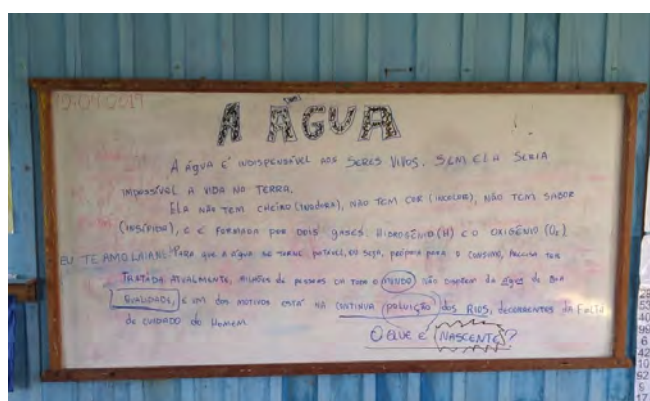 19.04.2017
A ÁGUA
A ÁGUA É INDISPENSÁVEL AOS SERES VIVOS. SEM ELA SERIA
IMPOSSÍVEL A VIDA NA TERRA.
ELA NÃO TEM CHEIRO (INODORA), NÃO TEM COR (INCOLOR), NÃO TEM SABOR
(INSÍPIDA), E É FORMADA POR DOIS GASES, HIDROGÊNIO (H) E O OXIGÊNIO (O₂)
EU TE AMO LAIANE PARA QUE A ÁGUA SE TORNE POTÁVEL, OU SEJA, PRÓPRIA PARA O CONSUMO, PRECISA SER
TRATADA ATUALMENTE, MILHÕES DE PESSOAS EM TODO O MUNDO NÃO DISPÕEM DA ÁGUA DE BOA
QUALIDADE, E UM DOS MOTIVOS ESTÁ NA CONTÍNUA POLUIÇÃO DOS RIOS, DECORRENTES DA FALTA
DE CUIDADO DO HOMEM.
O QUE É NASCENTE?
40
99
6
42
10
62
5
17